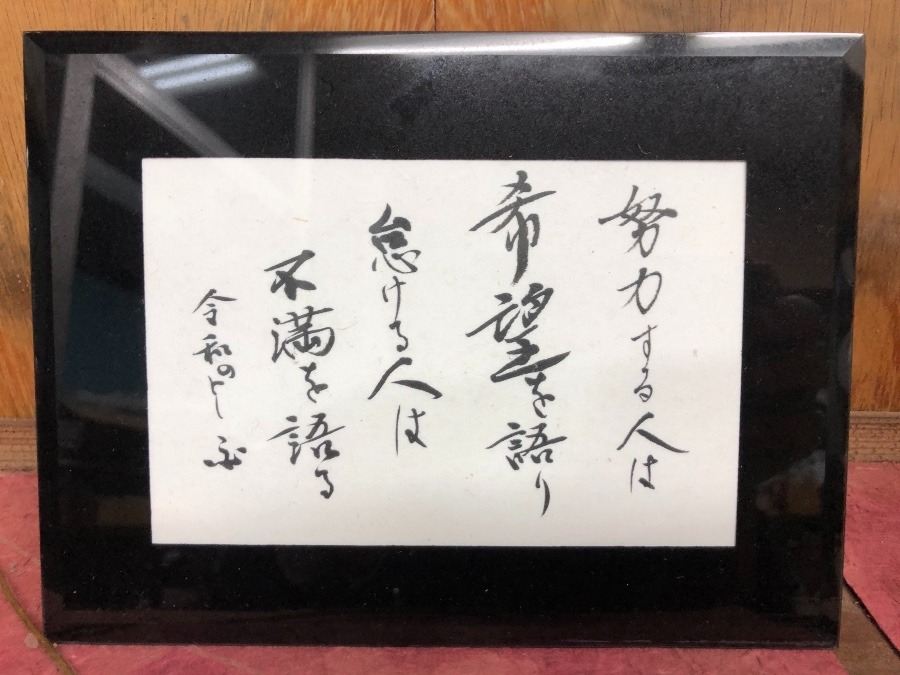 努力する人は
希望を語り
怠ける人は
不満を語る
令和のとし